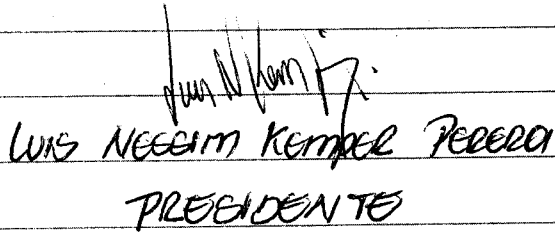 LUIS NESSIM KEMPER PERERA
PRESIDENTE